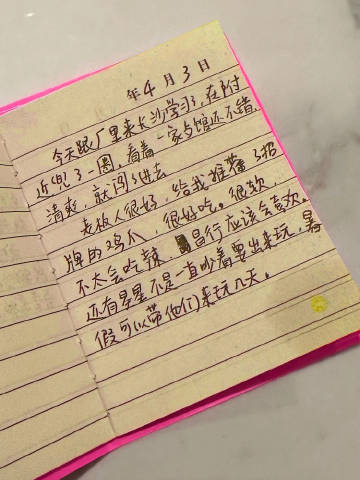 年4月3日
今天跟厂里来长沙学习,在附
近兜了一圈,看着一家乡馆还不错,
清爽,就闯了进去
老板人很好,给我推荐了招
牌的鸡爪,很好吃。很软,
不太会吃辣,昌行应该会喜欢。
还有星星不是一直吵着要出来玩,暑
假可以带他们来玩几天。